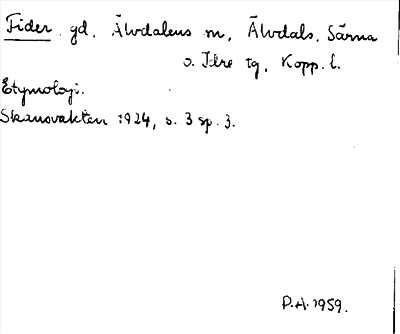 Fider gd, Älvdalens sn, Älvdals, Särna
o. Idre tg, Kopp. l.
Etymologi.
Skansvakten 1924, s. 3 sp. 3.
P.H. 1959.